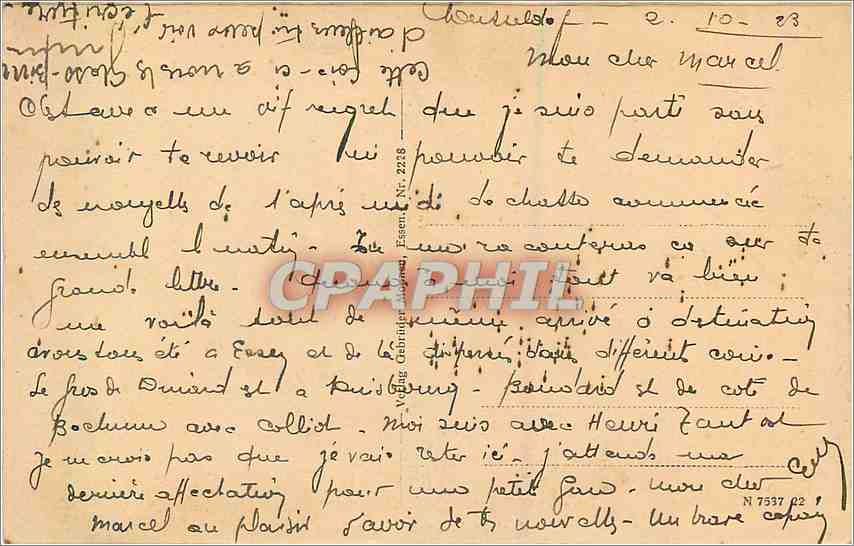 Dusseldorf - 2. 10 - 23
Mon cher Marcel
C'est avec un vif regret que je suis parti sans
pouvoir te revoir ni pouvoir te demander
des nouvelles de l'après midi de chasse commencée
ensemble le matin - Tu me raconteras ça sur ta
grande lettre - Quant à moi tout va bien
me voilà tout de même arrivé à destination
avons tous été à Essen et de là dispersés dans différent coins -
Le gros de Durand est à Duisbourg - est de coté de
Bochum avec Colliot - Moi suis avec Henri
Je ne crois pas que je vais rester ici - j'attends ma
dernière affectation pour une petite gare - mon cher
Marcel au plaisir d'avoir de tes nouvelles - Un brave copain
Cette fois-ci a nous le
d'ailleurs tu peux voir
l'écriture -
Verlag Gebrüder Mönnen, Essen. Nr. 2228
N 7537 22
CPAPHIL